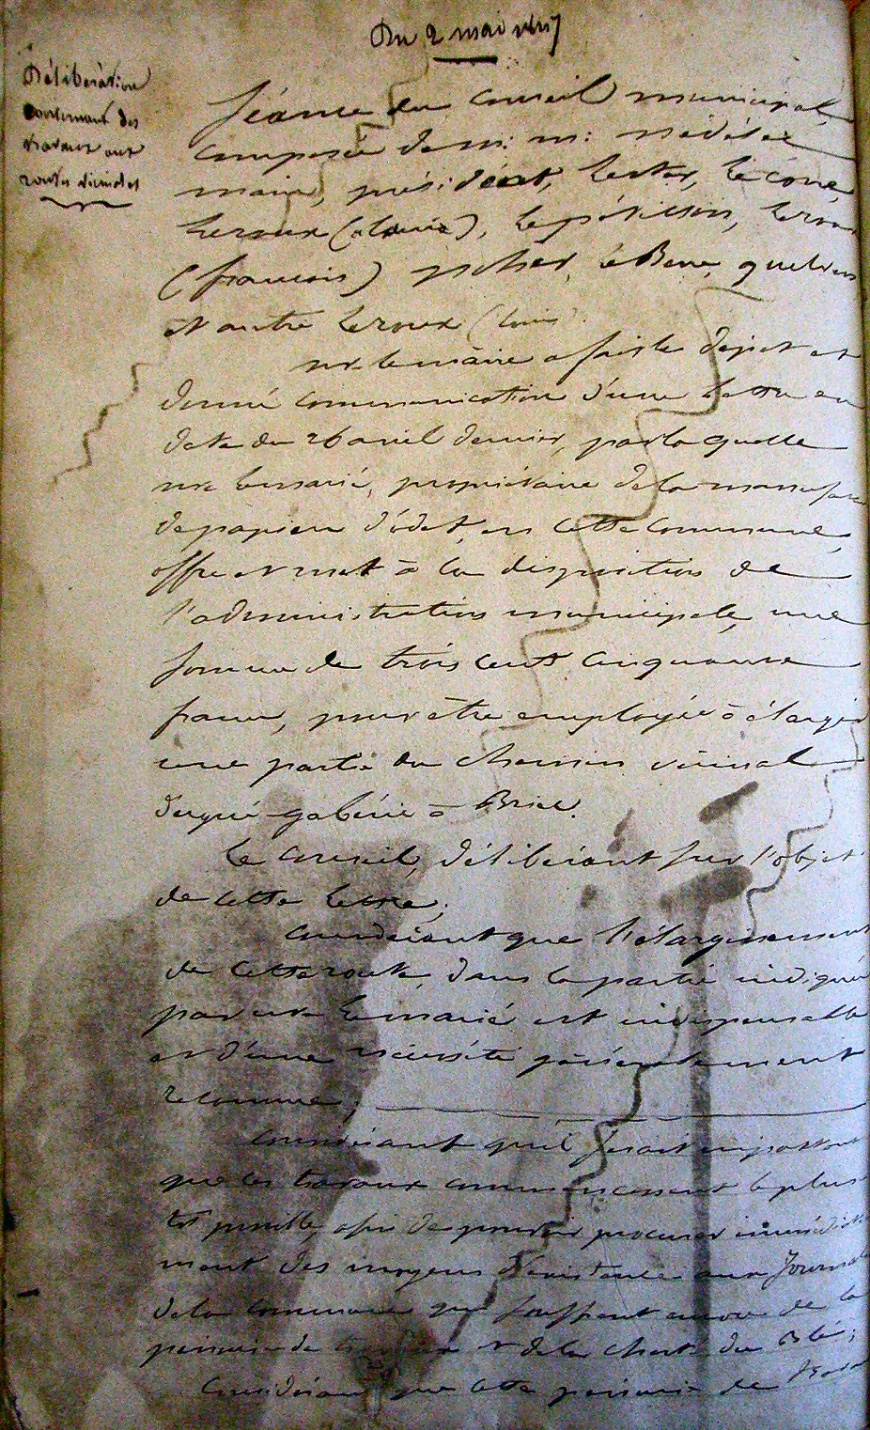 Du 2 mai 1847
Délibération
concernant des
travaux aux
routes vicinales
Séance du conseil municipal
composée de m.m:
maire, président,
Leroux (alain),
(francois)
et autre Leroux (louis)
mr le maire a fait le dépot et
donné communication d'une lettre en
date du 26 avril dernier, par laquelle
mr Lemarié, propriétaire de la manufac
de papier d'odet, en cette commune,
offre et met à la disposition de
l'administration municipale, une
somme de trois cent cinquante
francs, pour être employée à élargir
une partie du chemin vicinal
à Briec.
Le Conseil, délibérant sur l'objet
de cette lettre;
Considérant que l'élargissement
de cette route, dans la partie indiquée
par mr Lemarié est indispensable
et d'une nécessité généralement
reconnue;
Considérant qu'il serait important
que les travaux commencassent le plus
tôt possible, afin de pouvoir procurer immédiate
ment des moyens d'existence aux Journal
de la commune qui souffrent encore de la
pénurie de travaux et de la cherté du Blé;
Considérant que cette pénurie de